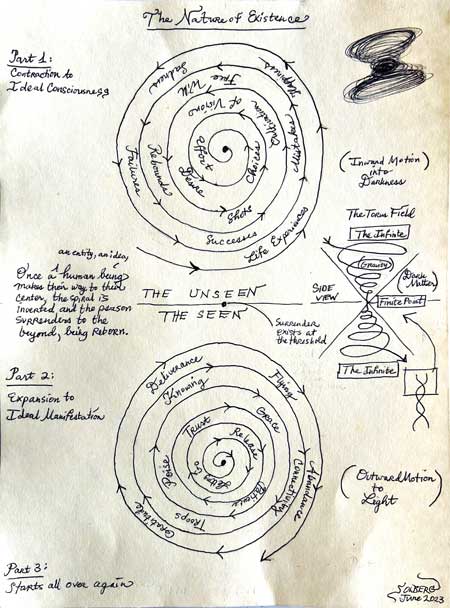 The Nature of Existence
Part 1:
Contraction to
Ideal Consciousness
Happiness
Sadness
Free Will
of Vision
Cultivation
Multiples
Effort
Desire
Choices
Rebounds
Failures
Shots
Successes
Life Experiences
(Inward Motion
into
Darkness)
The Torus Field
The Infinite
Gravity
(Dark
Matter)
SIDE
VIEW
Finite Point
The Infinite
an entity, an idea,
Once a human being
makes their way to their
center, the spiral is
inverted and the person
surrenders to the
beyond, being REBORN.
THE UNSEEN
THE SEEN
Surrender
exists at
the threshold
Part 2:
Expansion to
Ideal Manifestation
Deliverance
Knowing
Flying
Grace
Trust
Release
Letting Go
Patience
Connectivity
Abundance
Poise
Troops
Gratitude
(Outward Motion
to
Light)
Part 3:
Starts all over again
SOLBERG
June 2023